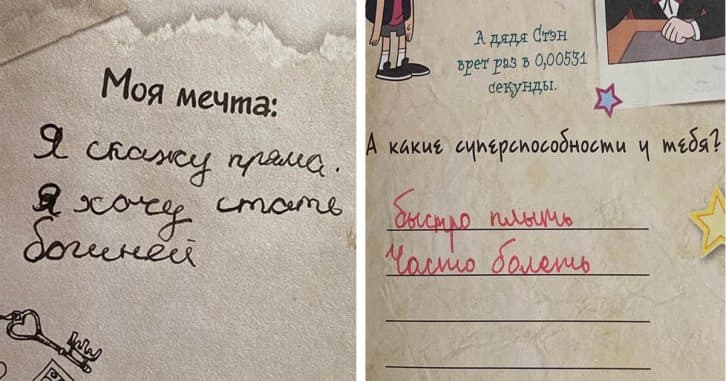 Моя мечта:
Я скажу пряма.
Я хочу стать
богиней
А дядя Стэн
врет раз в 0,00531
секунды.
А какие суперспособности у тебя?
быстро плыть
Часто болеть